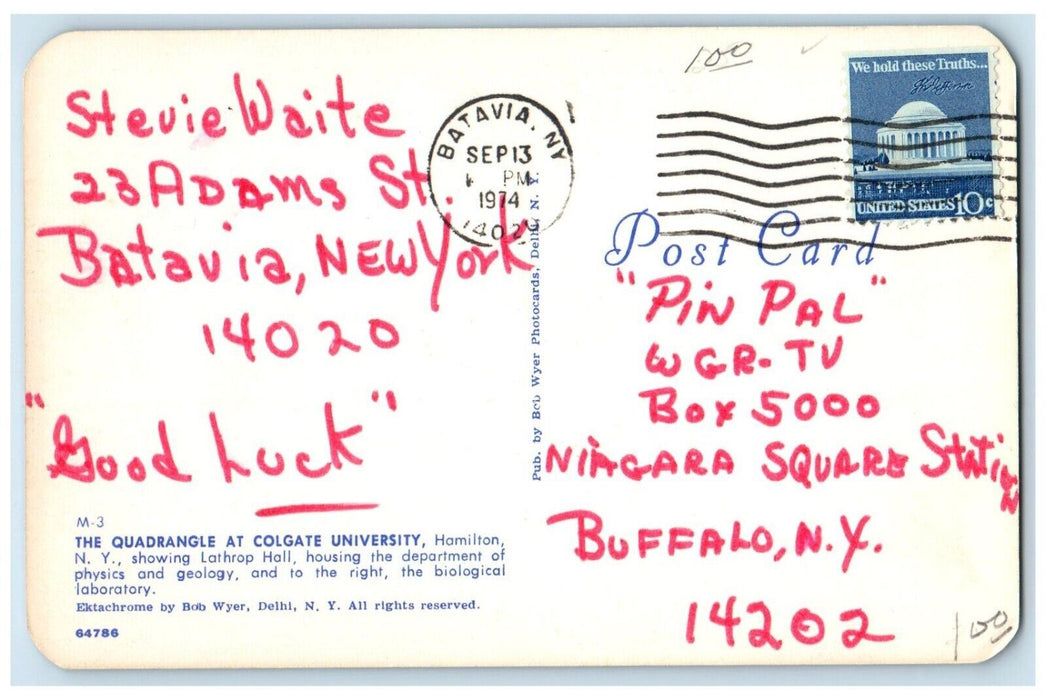 Stevie Waite
23 ADAMS St.
Batavia, NEW York
14020
"Good Luck"
M-3
THE QUADRANGLE AT COLGATE UNIVERSITY, Hamilton,
N. Y., showing Lathrop Hall, housing the department of
physics and geology, and to the right, the biological
laboratory.
Ektachrome by Bob Wyer, Delhi, N. Y. All rights reserved.
64786
BATAVIA, NY
SEP 13
PM
1974
Pub. by Bob Wyer Photocards, Delhi, N. Y.
100
We hold these Truths...
UNITED STATES 10c
Post Card
"PIN PAL"
WGR-TV
Box 5000
NIAGARA SQUARE Station
BUFFALO, N.Y.
14202
100